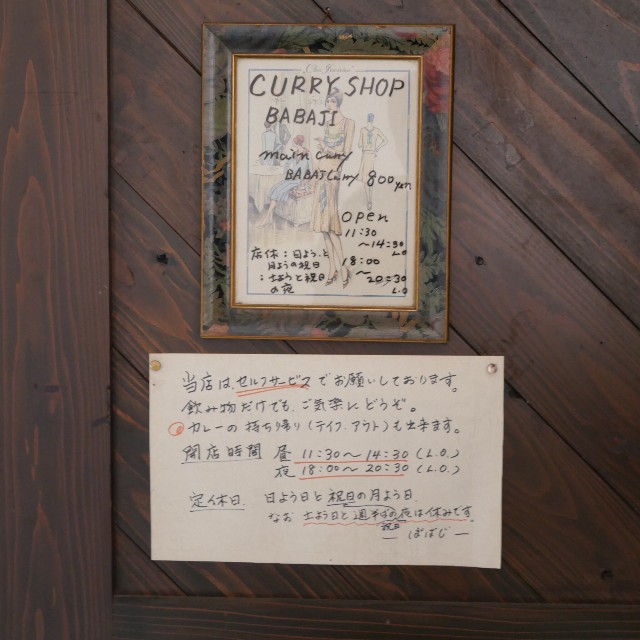 CURRY SHOP
BABAJI
main curry
BABAJI Curry 800yen
Open
11:30
〜14:30
L.O
18:00
〜
20:30
L.O
店休：日ようと
月ようの祝日
：土ようと祝日
の夜
当店は、セルフサービスでお願いしております。
飲み物だけでも、ご気楽にどうぞ。
カレーの持ち帰り(テイク・アウト)も出来ます。
開店時間 昼 11:30〜14:30(L.O.)
夜 18:00〜20:30(L.O.)
定休日 日よう日と祝日の月よう日、
なお 土よう日と の夜は休みです。
祝日
ばばじー